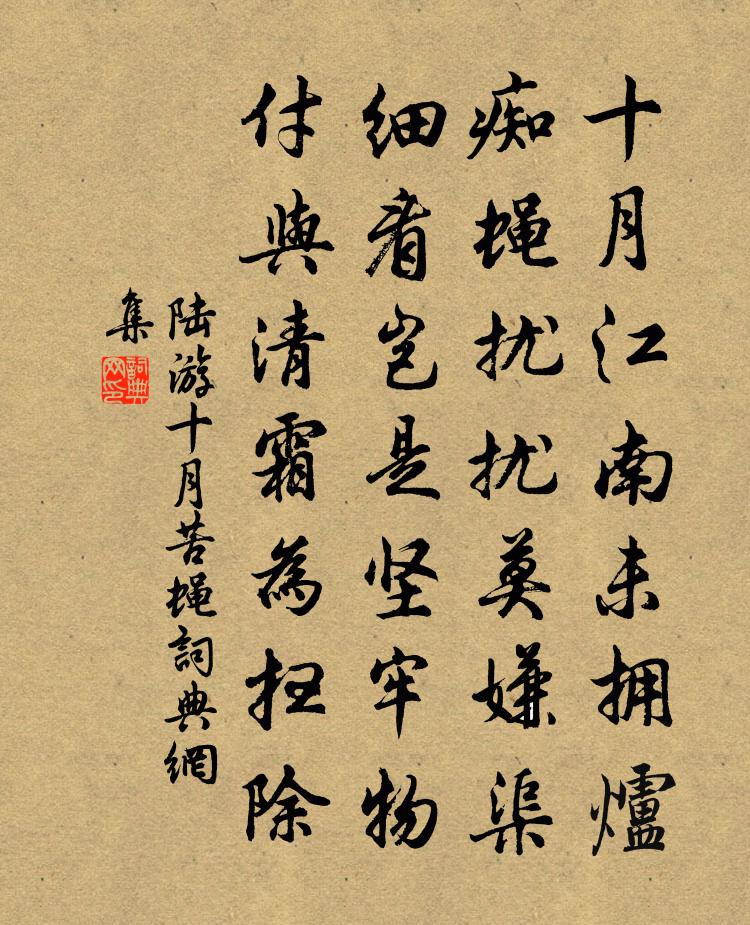 十月江南未拥爐
痴蝇扰扰莫嫌渠
细看岂是坚牢物
付與清霜為扫除
陆游十月苦蝇詞典網
集
詞典網印